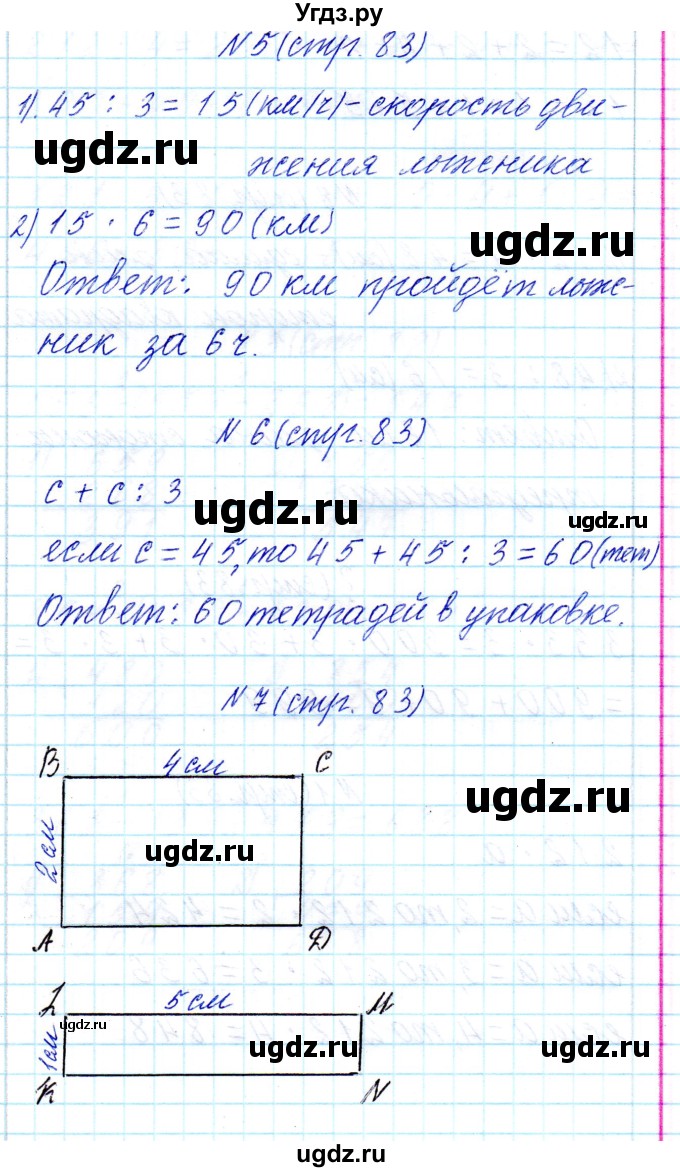 Угдз.ру
N 5 (стр. 83)
1). 45 : 3 = 15 (км/ч) - скорость дви-
ugdz.ru
жения лыжника
2) 15 · 6 = 90 (км)
ugdz.ru
Ответ: 90 км пройдёт лыж-
ugdz.ru
ник за 6 ч.
N 6 (стр. 83)
c + c : 3
ugdz.ru
ugdz.ru
если c = 45, то 45 + 45 : 3 = 60 (тет)
Ответ: 60 тетрадей в упаковке.
ugdz.ru
N 7 (стр. 83)
B 4 см C
ugdz.ru
2 см
ugdz.ru
A D
L 5 см M
ugdz.ru
1 см
ugdz.ru
ugdz.ru
K N
ugdz.ru